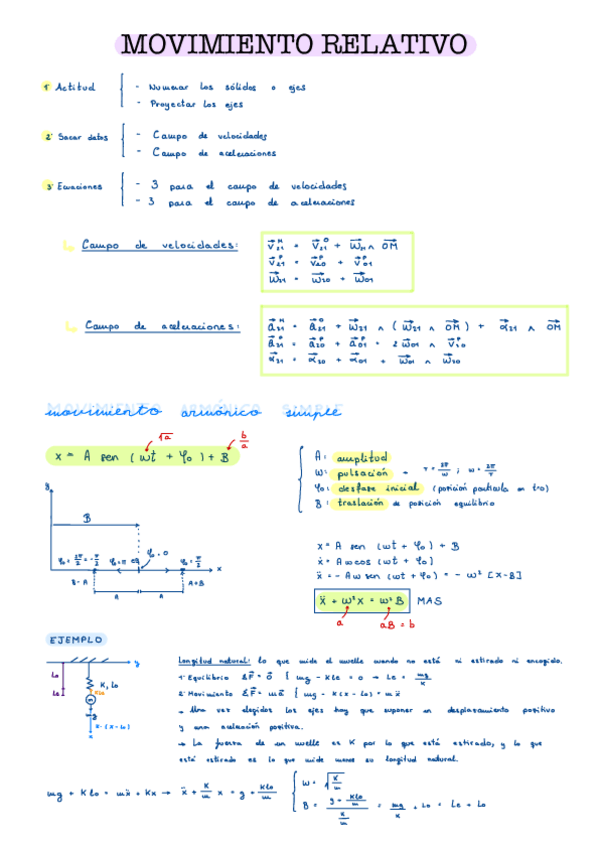 MOVIMIENTO RELATIVO
1º Actitud { - Numerar los sólidos o ejes
- Proyectar los ejes
2º Sacar datos { - Campo de velocidades
- Campo de aceleraciones
3º Ecuaciones { - 3 para el campo de velocidades
- 3 para el campo de aceleraciones
Campo de velocidades:
Campo de aceleraciones:
MOVIMIENTO ARMÓNICO SIMPLE
movimiento armónico simple
√a
b/a
x = A sen (ωt + φ₀) + B
A: amplitud
ω: pulsación
φ₀: desfase inicial (posición partícula en t=0)
B: traslación de posición equilibrio
y
B
φ₀ = π
φ₀ = 0
φ₀ = π/2
x
B-A
A+B
A A
x = A sen (ωt + φ₀) + B
ẋ = Aω cos (ωt + φ₀)
ẍ = -Aω sen (ωt + φ₀) = -ω² [x-B]
ẍ + ω²x = ω²B MAS
a
aB = b
EJEMPLO
y
K, l₀
m
x
Longitud natural: lo que mide el muelle cuando no está ni estirado ni encogido.
1º Equilibrio ΣF⃗ = 0⃗ { mg - Kle = 0 → le = mg/K
2º Movimiento ΣF⃗ = ma⃗ { mg - K(x - l₀) = mẍ
→ Una vez elegidos los ejes hay que suponer un desplazamiento positivo
y una aceleración positiva.
→ La fuerza de un muelle es K por lo que está estirado, y lo que
está estirado es lo que mide menos su longitud natural.
mg + Kl₀ = mẍ + Kx → ẍ + K/m x = g + Kl₀/m
ω = √(K/m)
B = (g + Kl₀/m)/(K/m) = mg/K + l₀ = le + l₀